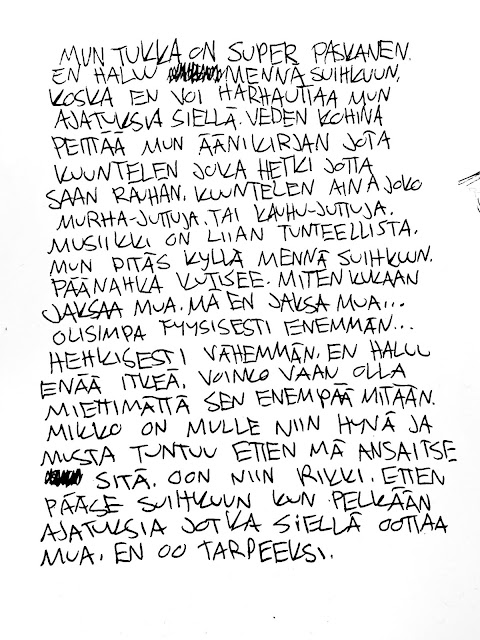 MUN TUKKA ON SUPER PASKANEN.
EN HALUU MENNÄ SUIHKUUN,
KOSKA EN VOI HARHAUTTAA MUN
AJATUKSIA SIELLÄ. VEDEN KOHINA
PEITTÄÄ MUN ÄÄNIKIRJAN JOTA
KUUNTELEN JOKA HETKI JOTTA
SAAN RAUHAN. KUUNTELEN AINA JOKO
MURHA-JUTTUJA. TAI KAUHU-JUTTUJA.
MUSIIKKI ON LIIAN TUNTEELLISTA.
MUN PITÄS KYLLÄ MENNÄ SUIHKUUN.
PÄÄNAHKA KUTISEE. MITEN KUKAAN
JAKSAA MUA. MÄ EN JAKSA MUA...
OLISIMPA FYYSISESTI ENEMMÄN...
HENKISESTI VÄHEMMÄN. EN HALUU
ENÄÄ ITKEÄ. VOINKO VAAN OLLA
MIETTIMÄTTÄ SEN ENEMPÄÄ MITÄÄN.
MIKKO ON MULLE NIIN HYVÄ JA
MUSTA TUNTUU ETTEN MÄ ANSAITSE
SITÄ. OON NIIN RIKKI. ETTEN
PÄÄSE SUIHKUUN KUN PELKÄÄN
AJATUKSIA JOTKA SIELLÄ OOTTAA
MUA. EN OO TARPEEKSI.